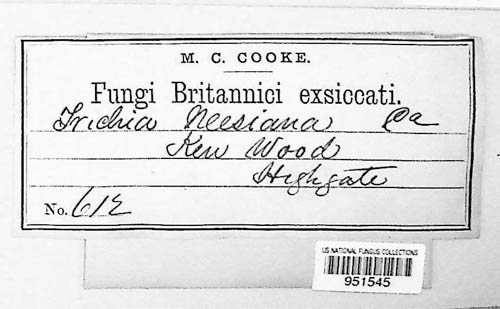 M. C. COOKE.
Fungi Britannici exsiccati.
Trichia Neesiana Ca
Ken Wood
Highgate
No. 612
US NATIONAL FUNGUS COLLECTIONS
951545